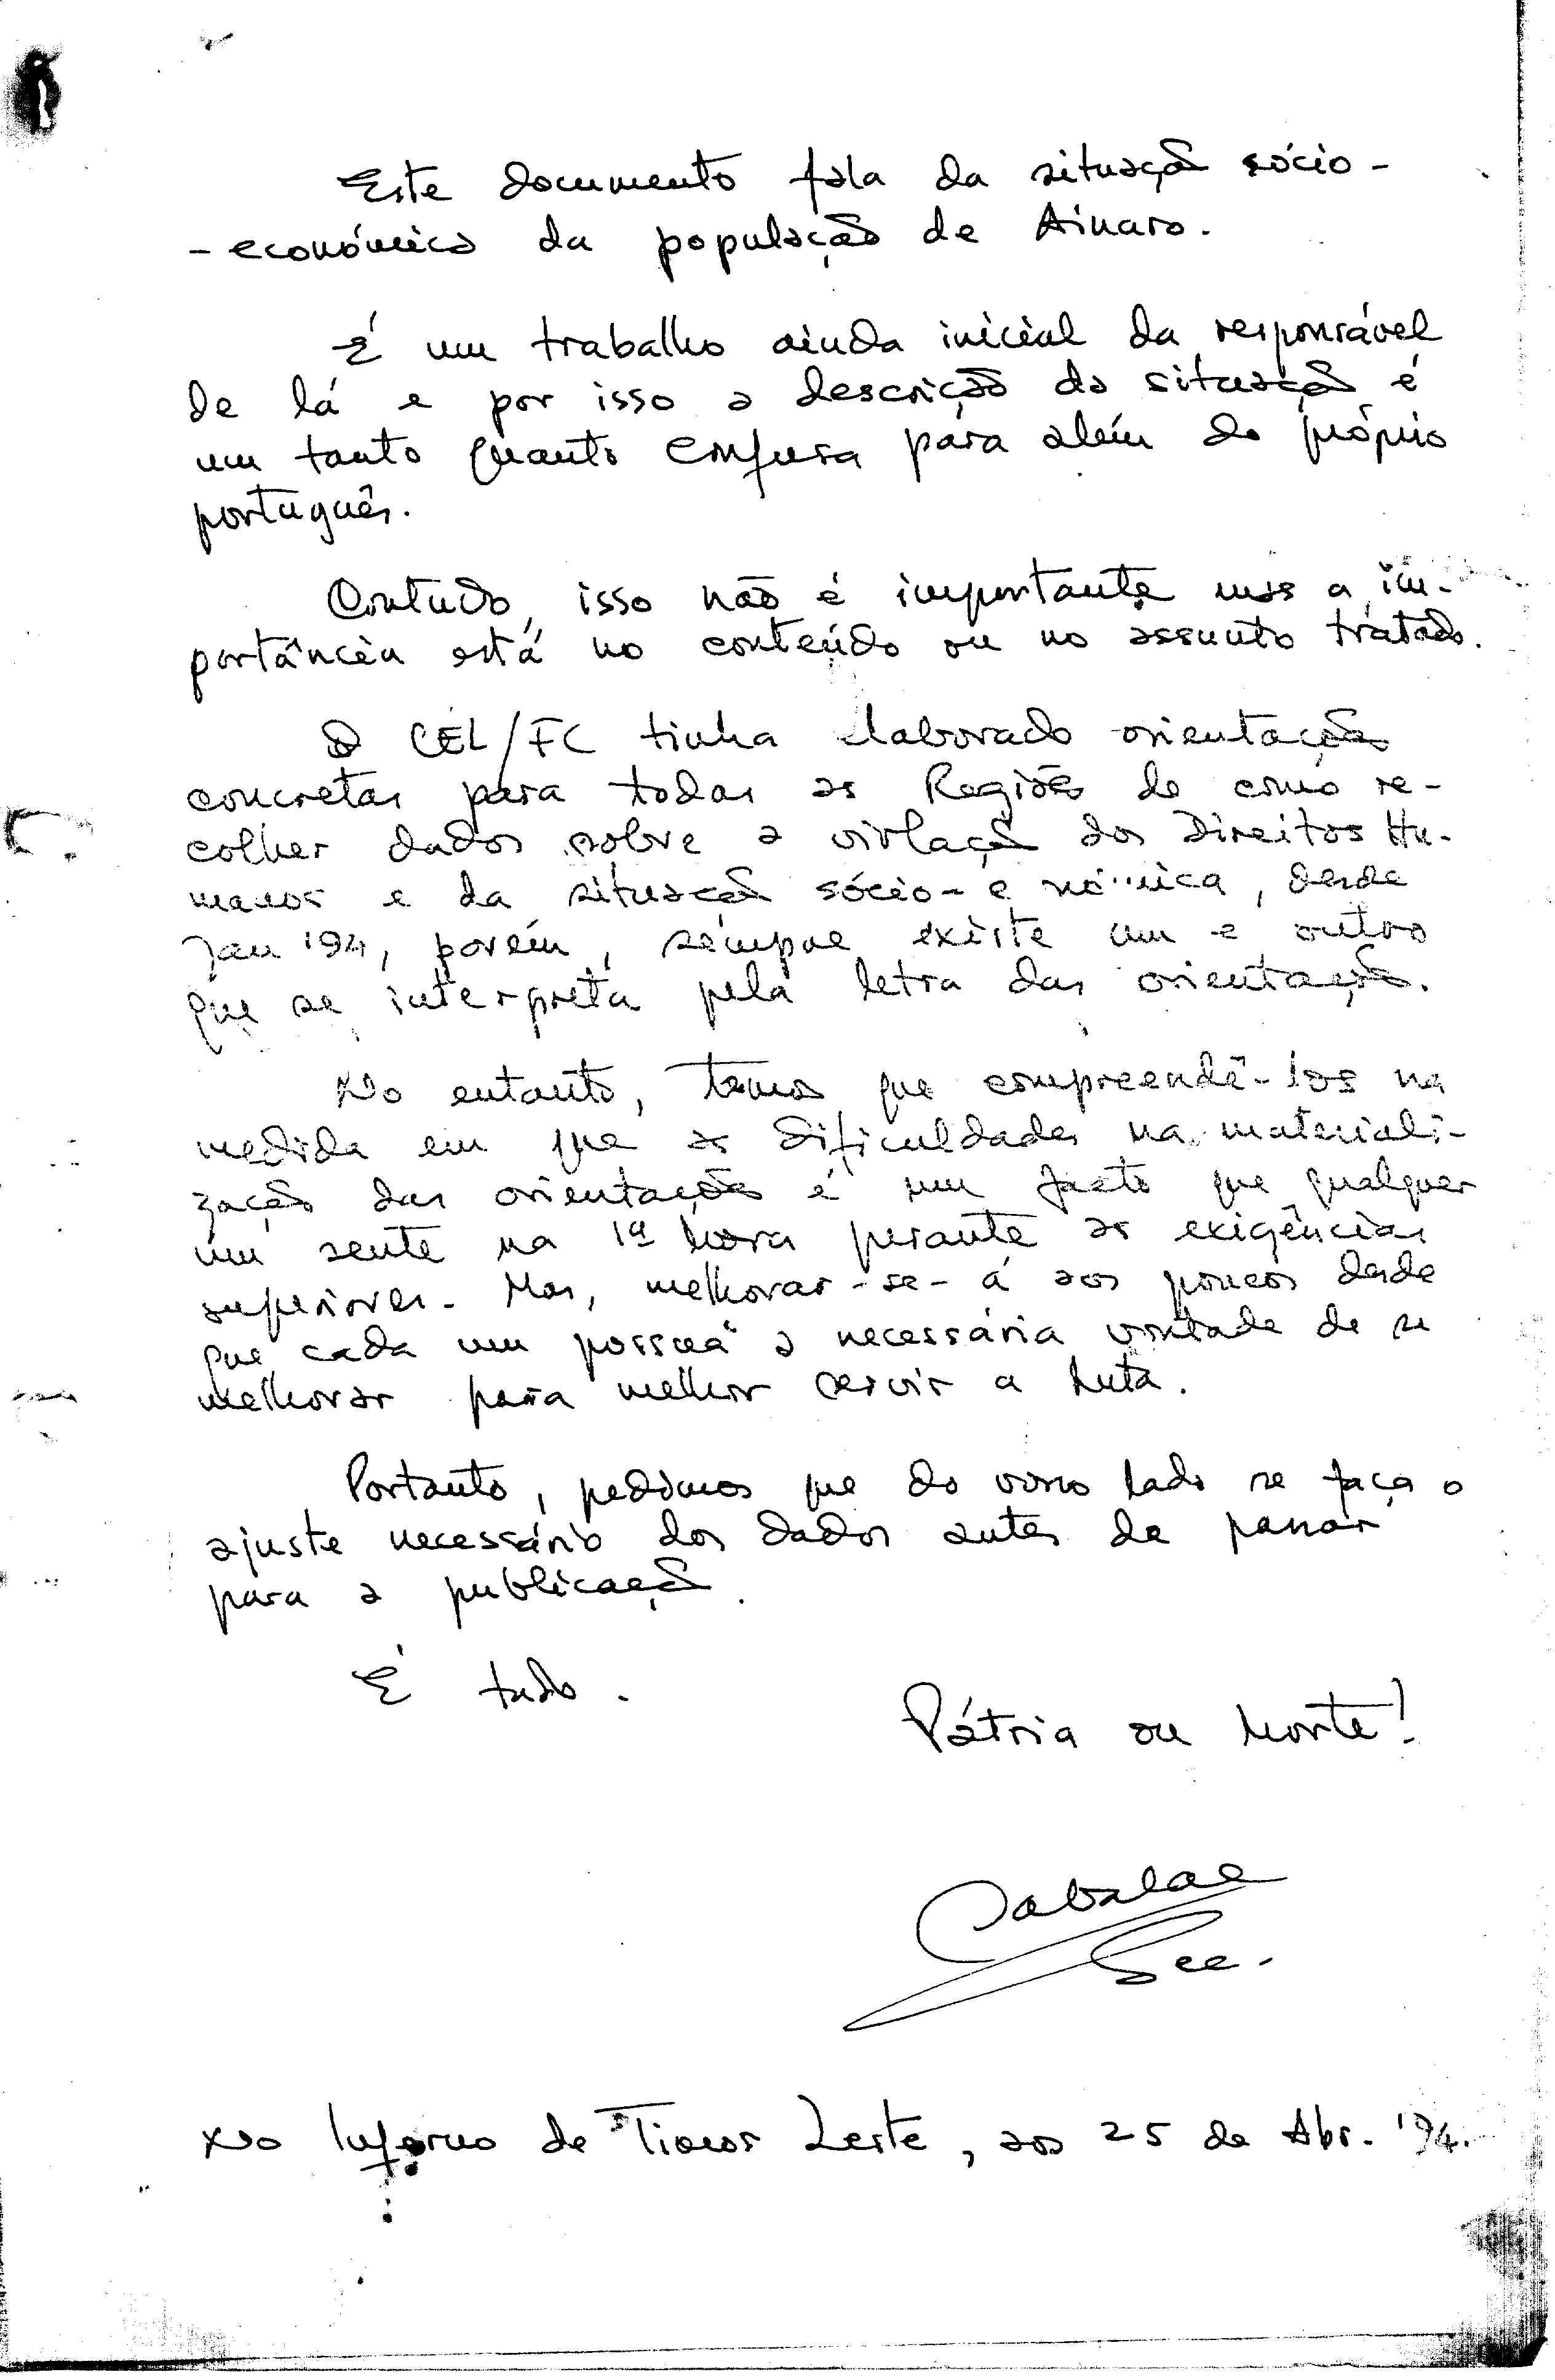 Este documento fala da situação sócio-
-económica da população de Ainaro.
É um trabalho ainda inicial da responsável
de lá e por isso a descrição da situação é
um tanto quanto confusa para além do próprio
português.
Contudo, isso não é importante mas a im-
portância está no conteúdo ou no assunto tratado.
O CEL/FC tinha elaborado orientações
concretas para todas as Regiões de como re-
colher dados sobre a violação dos Direitos Hu-
manos e da situação sócio-e nó mica, desde
Jan '94, porém, sempre existe um e outro
que se interpreta pela letra das orientação.
No entanto, temos que compreendê-los na
medida em que as dificuldades na materiali-
zação das orientações é um facto que qualquer
um sente na 1ª hora perante as exigências
superiores. Mas, melhorar-se-á aos poucos desde
que cada um possua a necessária vontade de se
melhorar para melhor servir a Luta.
Portanto, pedimos que do vosso lado se faça o
ajuste necessário dos dados antes de passar
para a publicação.
É tudo.
Pátria ou Morte!
Sabalae
Sec.
No Inferno de Timor Leste, aos 25 de Abr. '94.